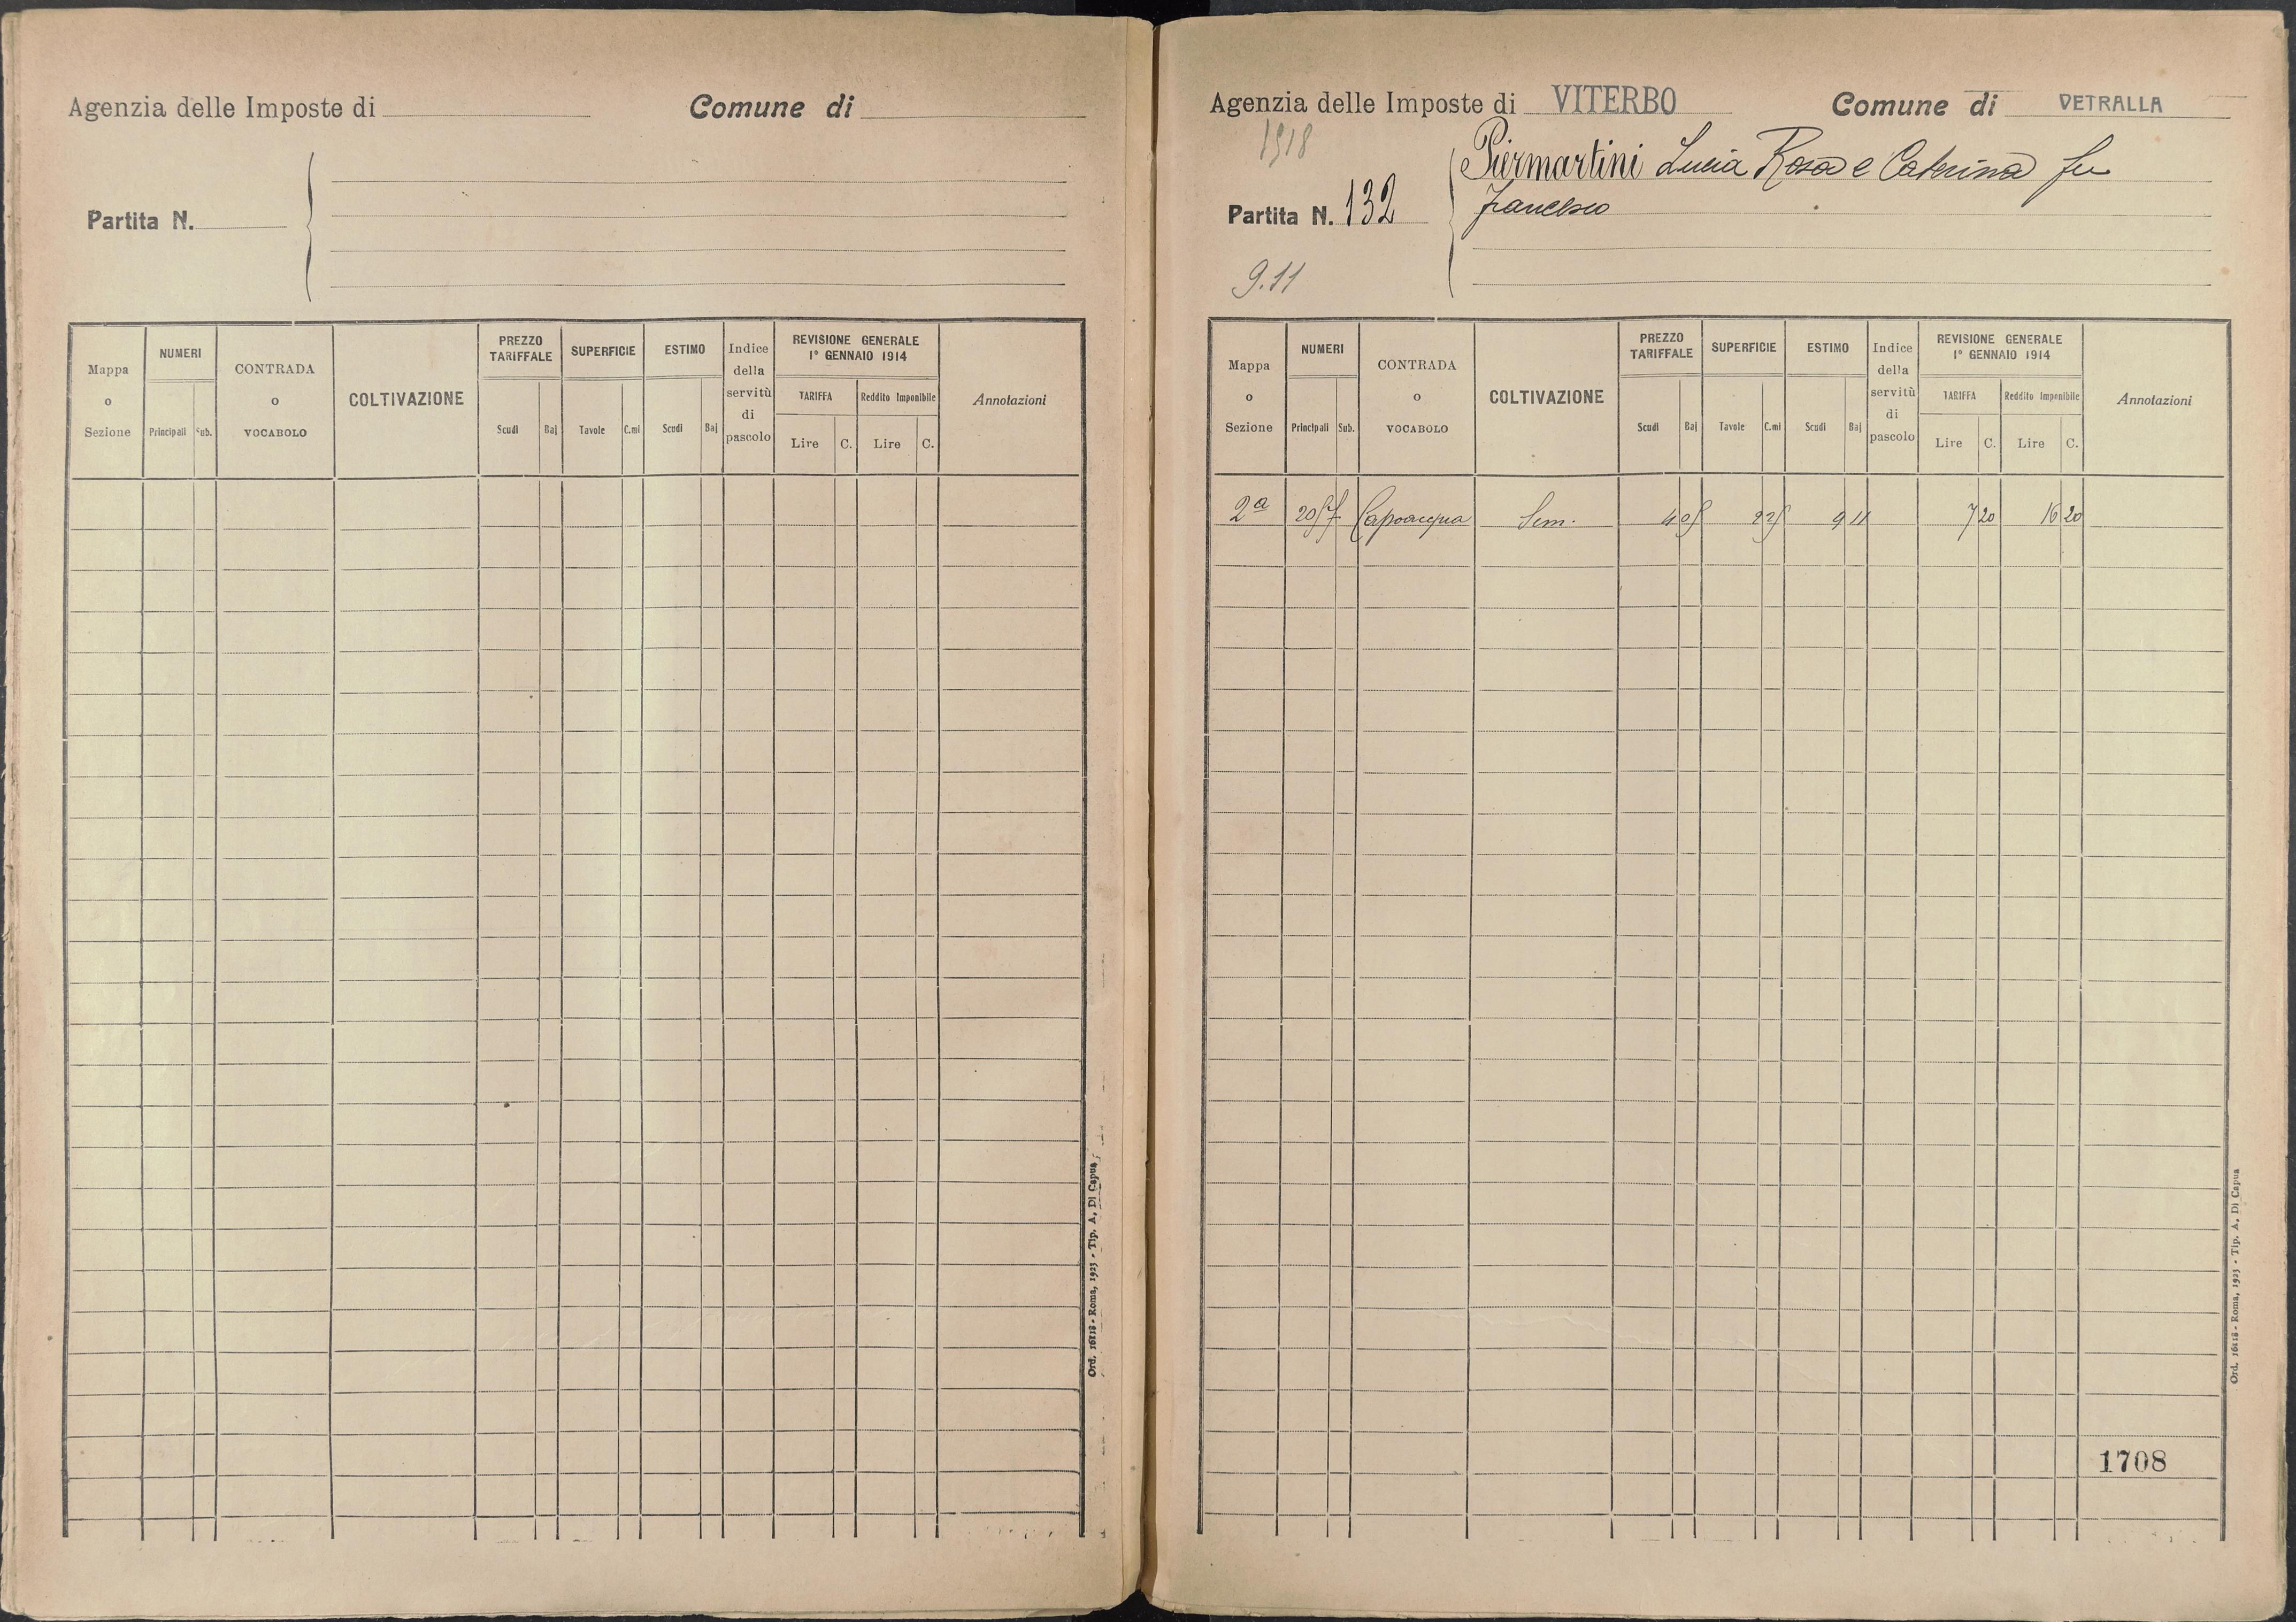 Agenzia delle Imposte di
Comune di
Partita N.
Mappa o Sezione
NUMERI
Principali Sub.
CONTRADA o VOCABOLO
COLTIVAZIONE
PREZZO TARIFFALE
Scudi Baj
SUPERFICIE
Tavole C.mi
ESTIMO
Scudi Baj
Indice della servitù di pascolo
REVISIONE GENERALE
1° GENNAIO 1914
TARIFFA
Reddito Imponibile
Lire C. Lire C.
Annotazioni
Ord. 16118 - Roma, 1923 - Tip. A. Di Capua
Agenzia delle Imposte di VITERBO
Comune di VETRALLA
1918
Piermartini Lucia Rosa e Caterina fu
Partita N. 132
Francesco
9.11
Mappa o Sezione
NUMERI
Principali Sub.
CONTRADA o VOCABOLO
COLTIVAZIONE
PREZZO TARIFFALE
Scudi Baj
SUPERFICIE
Tavole C.mi
ESTIMO
Scudi Baj
Indice della servitù di pascolo
REVISIONE GENERALE
1° GENNAIO 1914
TARIFFA
Reddito Imponibile
Lire C. Lire C.
Annotazioni
2a Capoacqua Sem. 9 11 7 20 16 20
1708
Ord. 16118 - Roma, 1923 - Tip. A. Di Capua